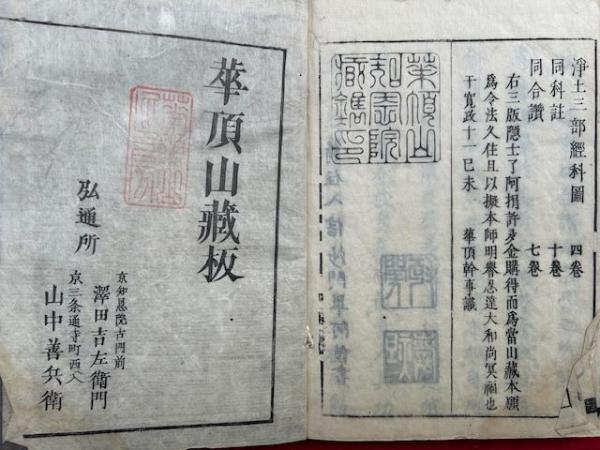 淨土三部經科圖 四卷
同科註 十卷
同合讃 七卷
右三版隠士了阿捐許多金購得而爲當山藏本願
爲令法久住且以擬本師明譽思達大和尚冥福也
于寛政十一己未 華頂幹事識
華頂山
知恩院
藏鐫印
華頂山藏板
弘通所
京知恩院古門前
澤田吉左衛門
京三条通寺町西入
山中善兵衛